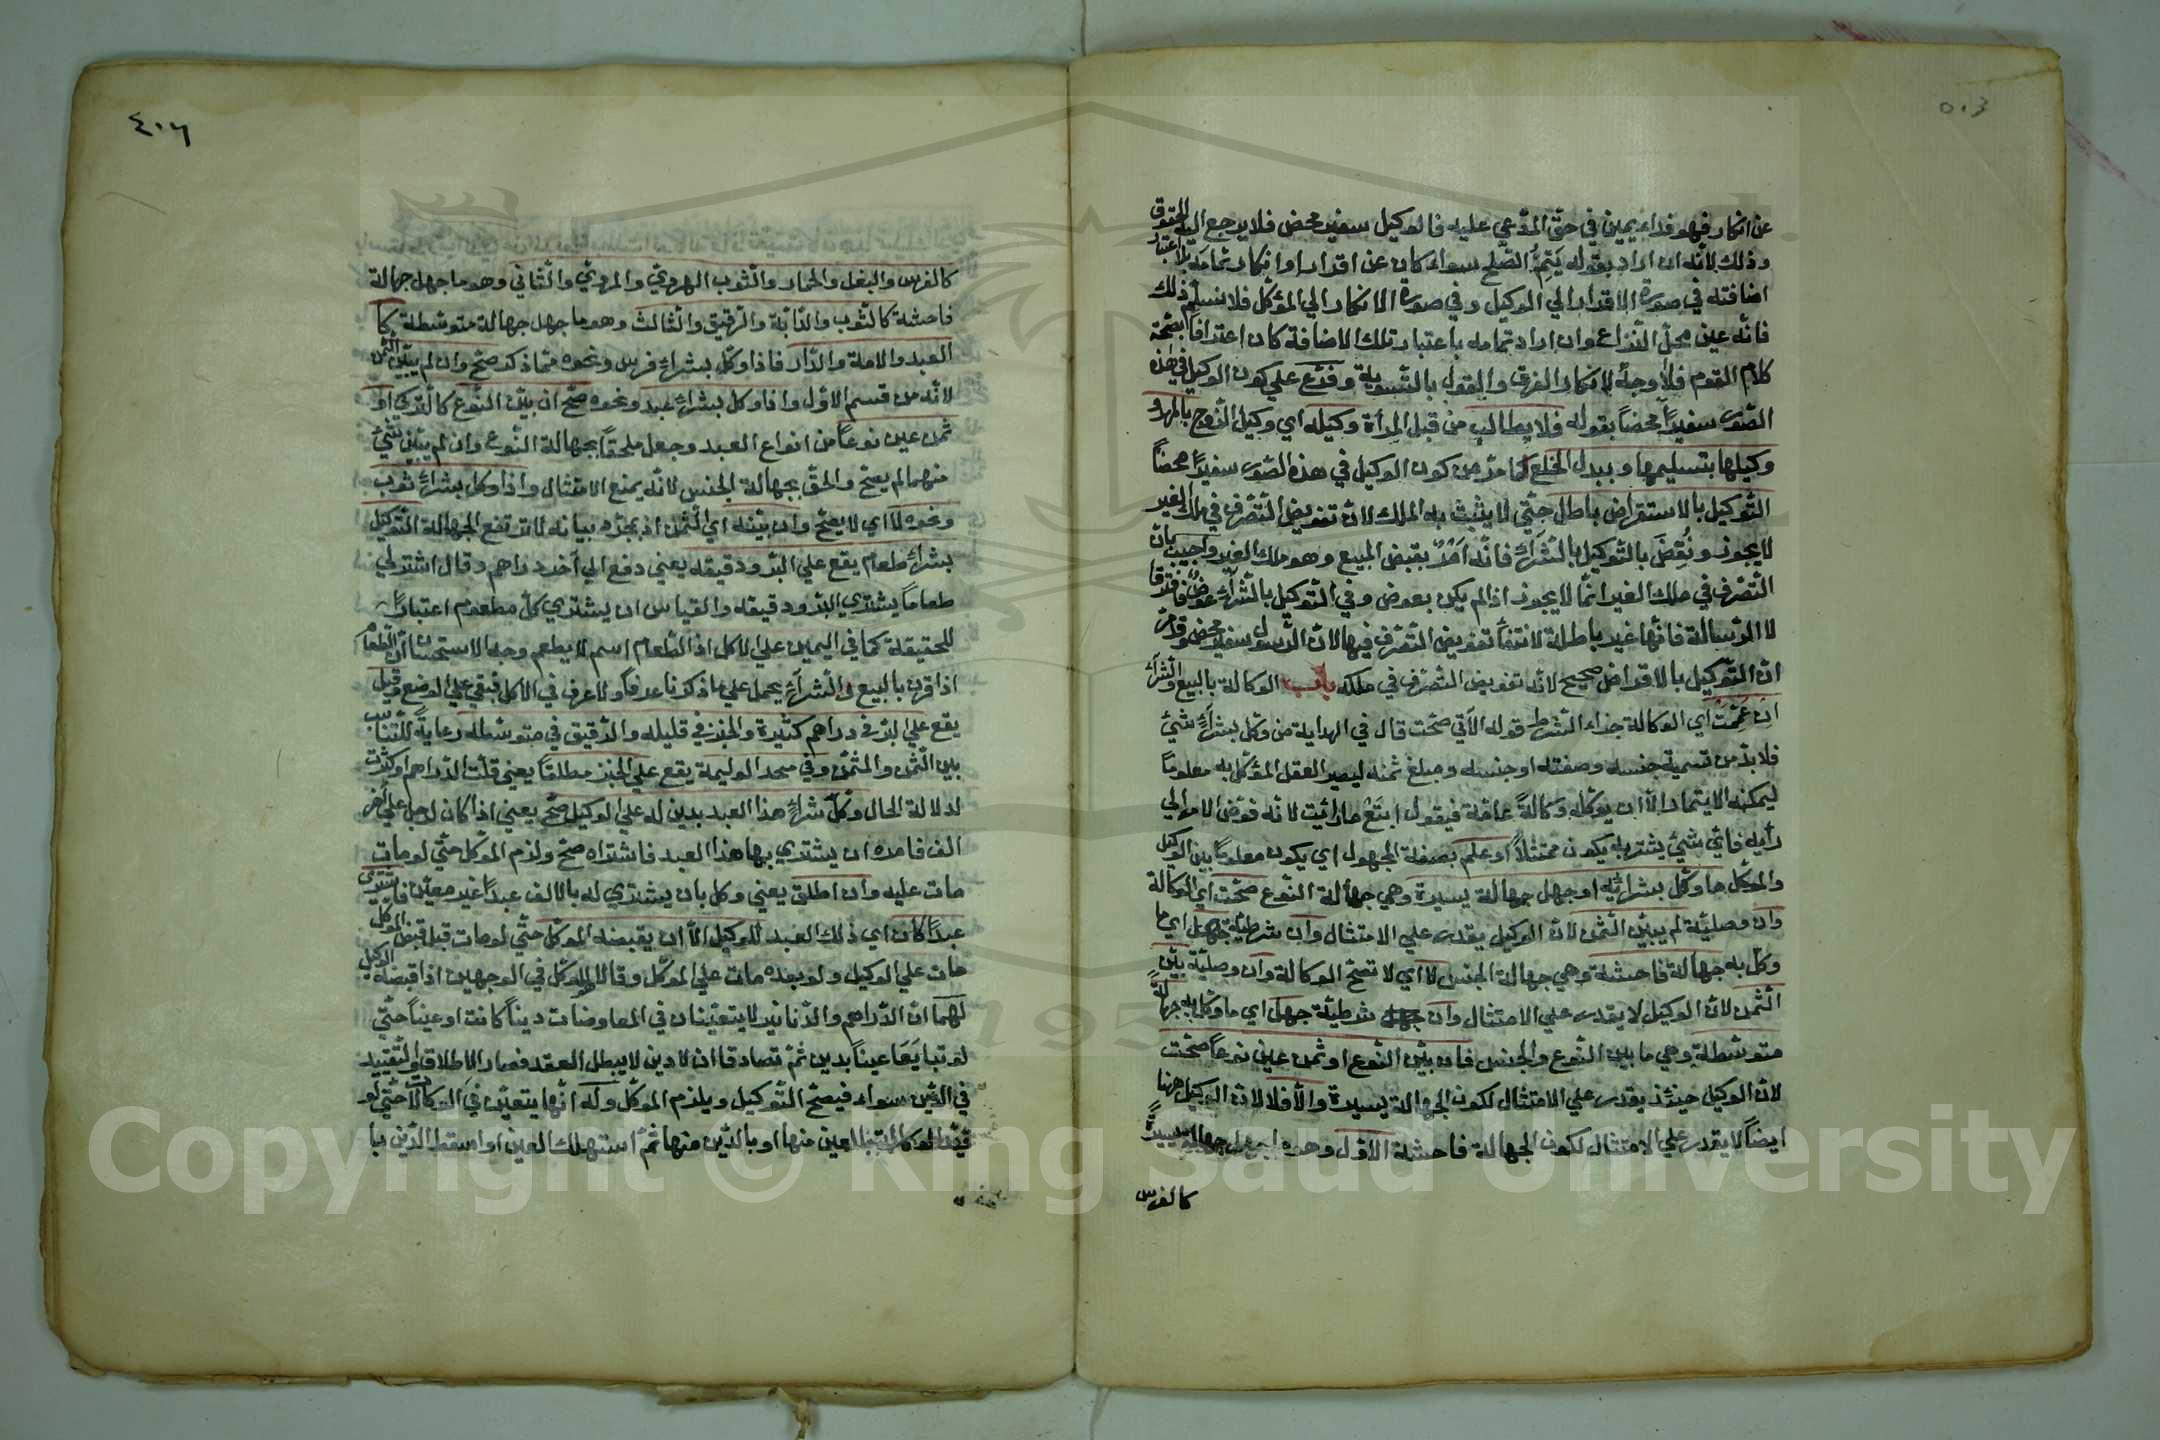 ٥٠٣
عن انكار فهو فداء يمين في حق المدعي عليه فالوكيل سفير محض فلا يرجع اليه الحقوق
وذلك لانه ان اراد بقوله يتم الصلح سواء كان عن اقرار او انكار تمامه بلا اعتبار
اضافته في صورة الاقرار الي الموكيل وفي صورة الانكار الي المؤكل فلا نسلم ذلك
فانه عين محل النزاع وان اراد تمامه باعتبار تلك الاضافة كان اعترافا بصحة
كلام القوم فلا وجه لانكار الفرق والقول بالتسوية وفرع علي كون الوكيل في هذه
الصور سفيرا محضا بقوله فلا يطالب من قبل المرأة وكيله اي وكيل الزوج بالمهر و
وكيلها بتسليمها وببدل الخلع لما مر من كون الوكيل في هذه الصور سفيرا محضا
التوكيل بالاستقراض باطل حتي لا يثبت به الملك لان تفويض التصرف في ملك الغير
لا يجوز ونقض بالتوكيل بالشراء فانه امر بقبض المبيع وهو ملك الغير واجيب بان
التصرف في ملك الغير انما لا يجوز اذا لم يكن بعوض وفي التوكيل بالشراء عوض فافترقا
لا الرسالة فانها غير باطلة لانتفاء تفويض التصرف فيها لان الرسول سفير محض وقد مر
ان التوكيل بالاقراض صحيح لانه تفويض التصرف في ملكه باب الوكالة بالبيع والشراء
ان عمت اي الوكالة جزاء الشرط قوله الآتي صحت قال في الهداية من وكل بشراء شيئ
فلا بد من تسمية جنسه وصفته او جنسه ومبلغ ثمنه ليصير العقل المؤكل به معلوما
ليمكنه الايتمار الا ان يوكله وكالة عامة فيقول ابتع ما رأيت لانه فوض الامر الي
رأيه فاي شيئ يشتريه يكون ممتثلا او علم بصفة المجهول اي يكون معلوما بين الوكيل
والموكل ما وكل بشرائه او جهل جهالة يسيرة وهي جهالة النوع صحت اي الوكالة
وان وصلية لم يبين الثمن لان الوكيل يقدر علي الامتثال وان شرطية جهل اي ما
وكل به جهالة فاحشة وهي جهالة الجنس لا اي لا تصح الوكالة وان وصلية بين
الثمن لان الوكيل لا يقدر علي الامتثال وان شرطية جهل اي ما وكل به جهالة
متوسطة وهي ما بين النوع والجنس فان بين النوع او ثمن عين نوعا صحت
لان الوكيل حينئذ يقدر علي الامتثال لكون الجهالة يسيرة والا فلا لان الوكيل ههنا
ايضا لا يقدر علي الامتثال لكون الجهالة فاحشة الاول وهو ما جهل جهالة يسيرة
كالفرس
٤٠٦
كالفرس والبغل والحمار والثوب الهروي والمروي والثاني وهو ما جهل جهالة
فاحشة كالثوب والدابة والرقيق والثالث وهو ما جهل جهالة متوسطة كا
العبد والامة والدار فاذا وكل بشراء فرس ونحوه مما ذكر صح وان لم يبين الثمن
لانه من قسم الاول واذا وكل بشراء عبد ونحوه صح ان بين النوع كالتركي او
ثمن عين نوعا من انواع العبد وجعل ملحقا بجهالة النوع وان لم يبين شيئ
منهما لم يصح والحق بجهالة الجنس لانه يمنع الامتثال واذا وكل بشراء ثوب
ونحوه لا اي لا يصح وان بينه اي الثمن اذ بمجرد بيانه لا ترتفع الجهالة التوكيل
بشراء طعام يقع علي البر ودقيقه يعني دفع الي آخر دراهم وقال اشتر لي
طعاما يشتري البر ودقيقه والقياس ان يشتري كل مطعوم اعتبارا
للحقيقة كما في اليمين علي الاكل اذ الطعام اسم لما يطعم وجه الاستحسان ان الطعام
اذا قرن بالبيع والشراء يحمل علي ما ذكرنا عرفا ولا عرف في الاكل فبقي علي الوضع وقيل
يقع علي البر في دراهم كثيرة والخبز في قليله والدقيق في متوسطه رعاية للتناسب
بين الثمن والمثمن وفي متخذ الوليمة يقع علي الخبز مطلقا يعني قلت الدراهم او كثرت
لدلالة الحال وكل شراء هذا العبد بدين له علي الوكيل صح يعني اذا كان لرجل علي آخر
الف فامره ان يشتري بها هذا العبد فاشتراه صح ولزم الموكل حتي لو مات
مات عليه وان اطلق يعني وكل بان يشتري له بالالف عبدا غير معين فاشتري
عبدا كان اي ذلك العبد للوكيل الا ان يقبضه الموكل حتي لو مات قبل قبض الموكل
مات علي الوكيل ولو بعده مات علي الموكل وقالا للموكل في الوجهين اذا قبضه الوكيل
لهما ان الدراهم والدنانير لا يتعينان في المعاوضات دينا كانت او عينا حتي
لو تبايعا عينا بدين ثم تصادقا ان لا دين لا يبطل العقد فصار الاطلاق والتقييد
في الدين سواء فيصح التوكيل ويلزم الموكل وله انها يتعين في الوكالات حتي لو
قيد الوكالة بالعين منها او بالدين منها ثم استهلك العين او اسقط الدين با